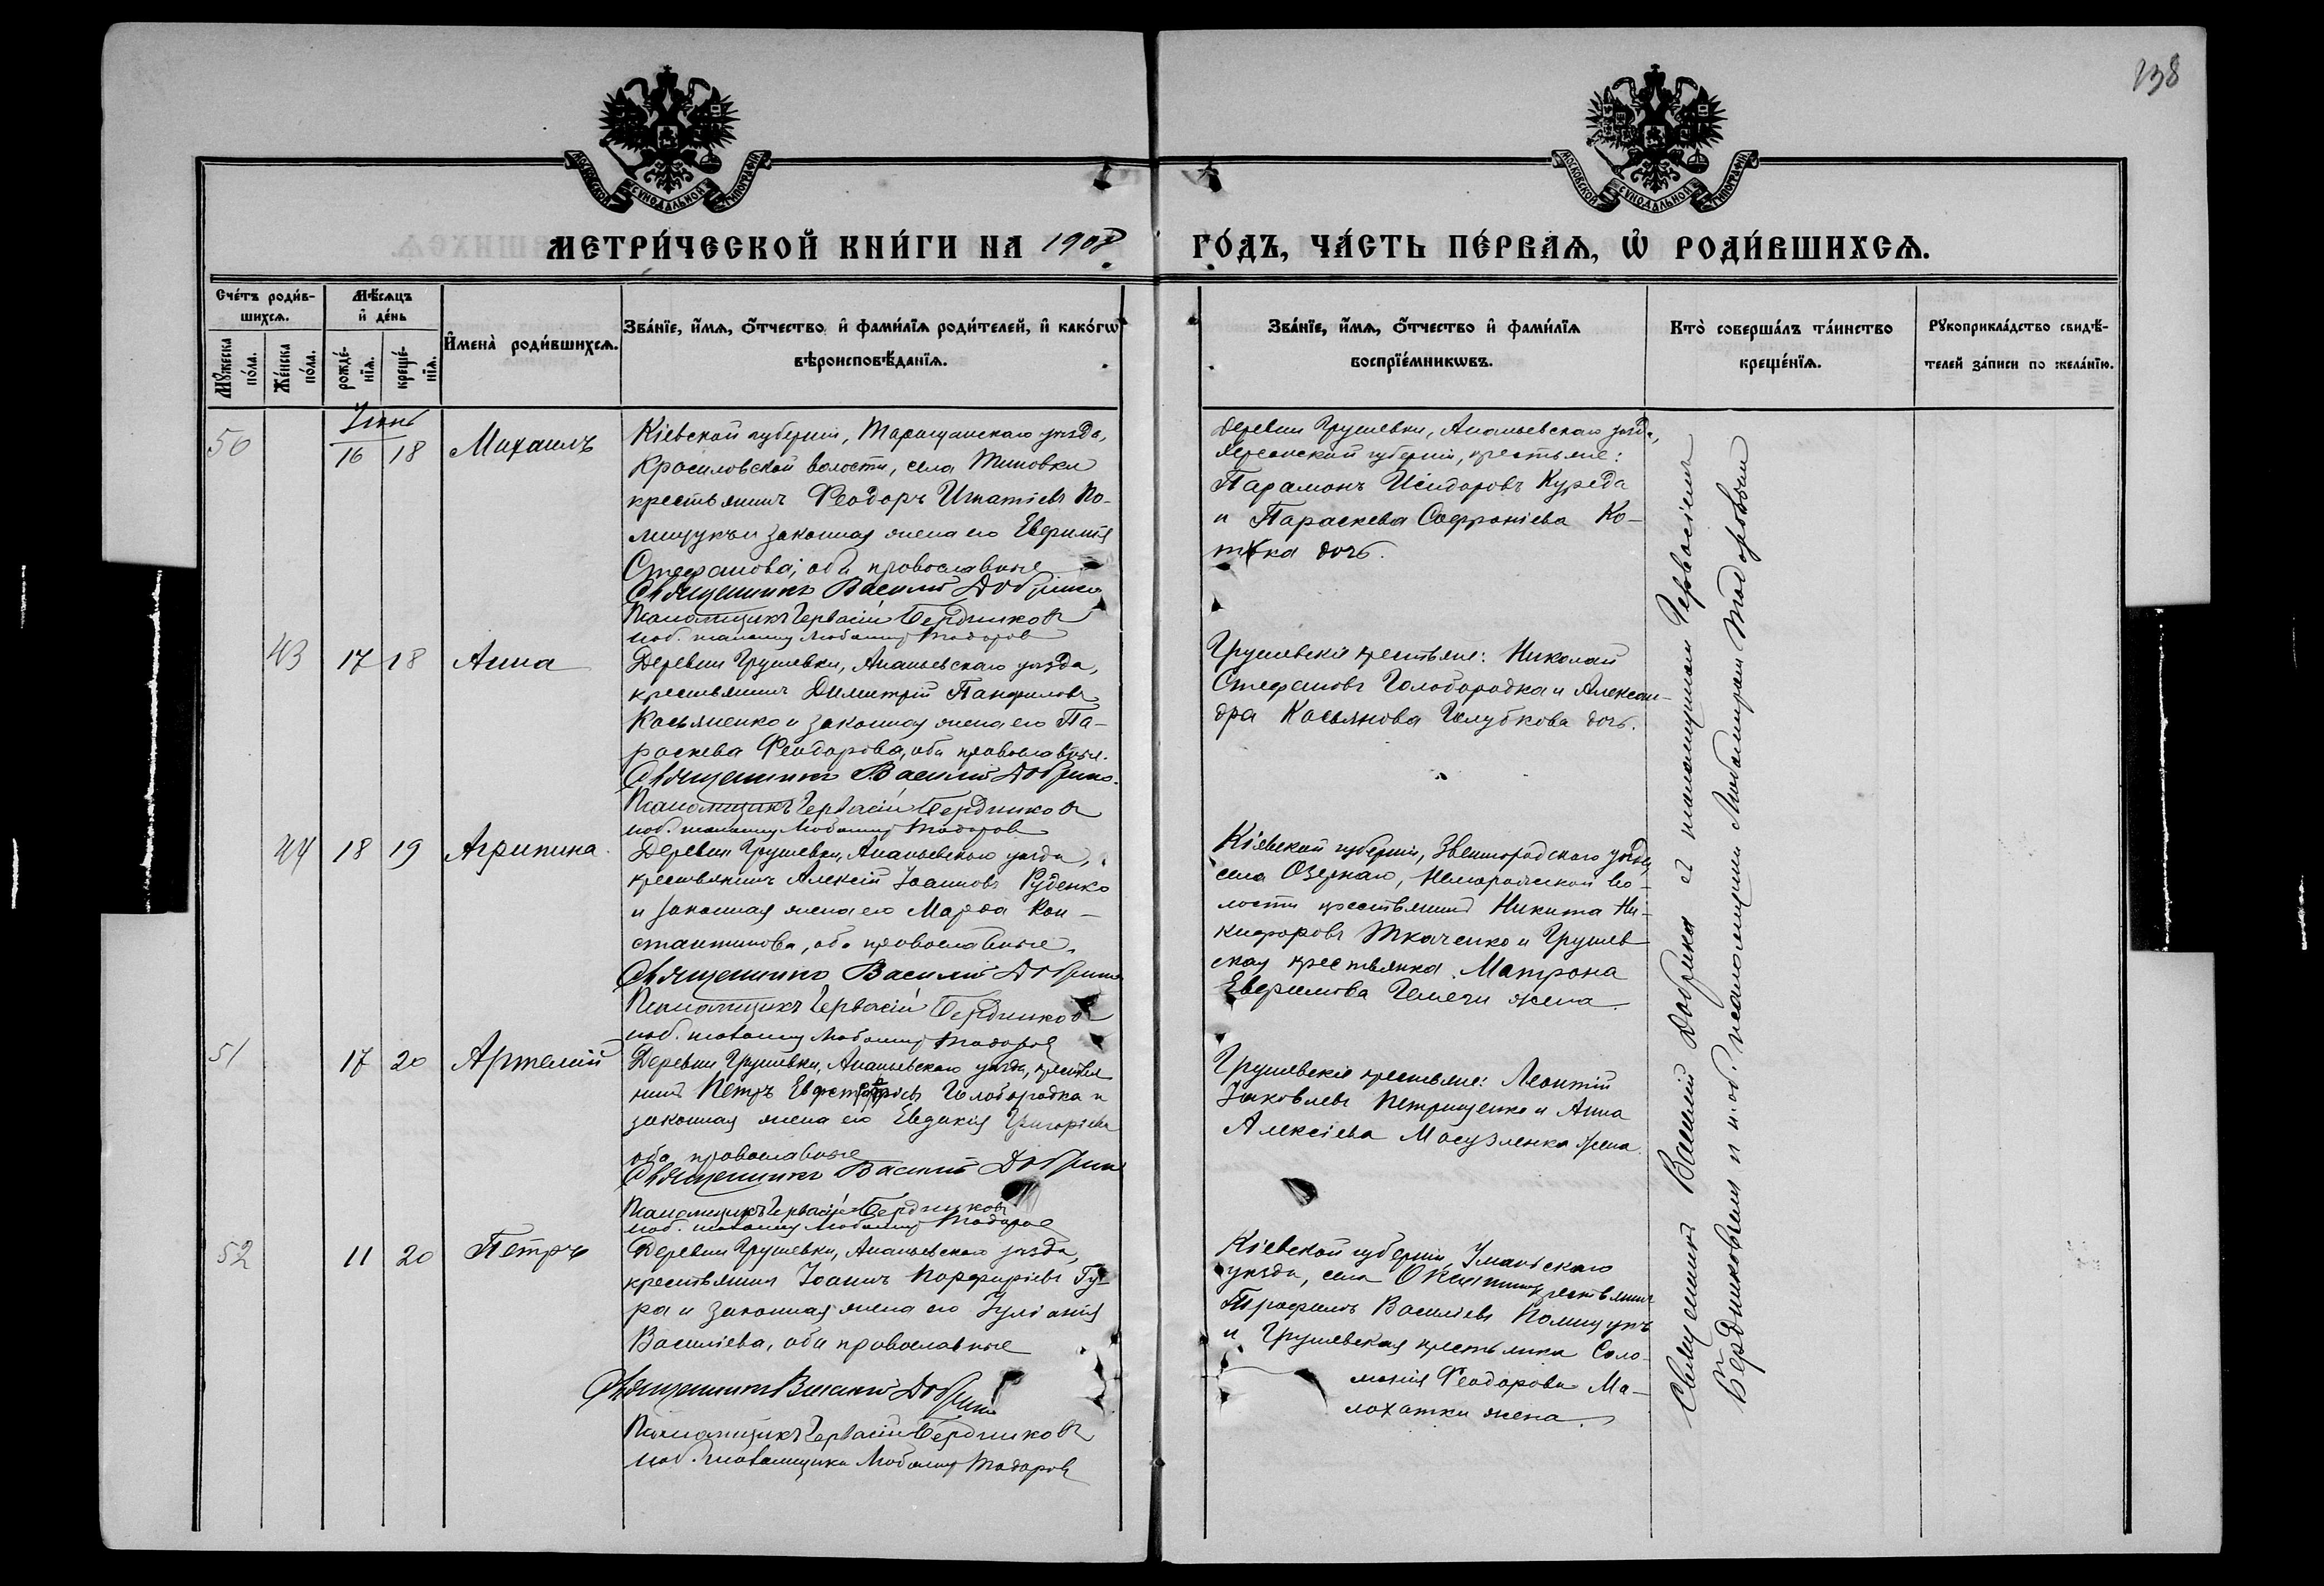 138
МОСКОВСКОЙ СѴНОДАЛЬНОЙ ТИПОГРАФІИ
МОСКОВСКОЙ СѴНОДАЛЬНОЙ ТИПОГРАФІИ
МЕТРИ́ЧЕСКОЙ КНИ́ГИ НА 1908 ГО́ДЪ, ЧА́СТЬ ПЕ́РВАѦ, Ѡ҆ РОДИ́ВШИХСѦ.
Сче́тъ роди́в-
шихсѧ.
Мꙋ́жеска по́ла.
Же́нска по́ла.
Мѣ́сѧцъ
и҆ де́нь
рожде́-
нїѧ.
креще́-
нїѧ.
И҆мена̀ роди́вшихсѧ.
Зва́нїе, и҆́мѧ, ѻ҆́тчество и҆ фами́лїѧ роди́телей, и҆ како́гѡ
вѣроисповѣ́данїѧ.
Зва́нїе, и҆́мѧ, ѻ҆́тчество и҆ фами́лїѧ
воспрїе́мникѡвъ.
Кто̀ соверша́лъ та́инство
креще́нїѧ.
Рꙋкоприкла́дство свидѣ́-
телей за́писи по жела́нїю.
Іюнь
50 16 18 Михаилъ
Кіевской губерніи, Таращанскаго уѣзда,
Красиловской волости, села Тиновки
крестьянинъ Феодоръ Игнатіевъ По-
лищукъ и законная жена его Евфимія
Стефанова; оба православные
Священникъ Василій Добрика
Псаломщикъ Гервасій Бердниковъ
и об. псаломщ Любомир Тодоровъ
Деревни Грушевки, Ананьевскаго уѣзда,
Херсонской губерніи, крестьяне:
Парамонъ Исидоровъ Куреда
и Параскева Софроніева Ко-
тка дочь.
43 17 18 Анна
Деревни Грушевки, Ананьевскаго уѣзда,
крестьянинъ Димитрій Панфиловъ
Касьяненко и законная жена его Па-
раскева Феодорова, оба православные.
Священникъ Василій Добрика.
Псаломщикъ Гервасій Бердниковъ
и об. псаломщ Любомир Тодоровъ
Грушевскіе крестьяне: Николай
Стефановъ Голобородка и Алексан-
дра Касьянова Голубкова дочь.
44 18 19 Агрипина.
Деревни Грушевки, Ананьевскаго уѣзда,
крестьянинъ Алексій Іоанновъ Руденко
и законная жена его Марѳа Кон-
стантинова, оба православные.
Священникъ Василій Добрика
Псаломщикъ Гервасій Бердниковъ
и об. псаломщ Любомир Тодоровъ
Кіевской губерніи, Звенигородскаго уѣзда,
села Озернаго, во-
лости крестьянинъ Никита Ни-
кифоровъ Ткаченко и Грушев
ская крестьянка Матрона
Евфимова жена.
51 17 20 Артемій
Деревни Грушевки, Ананьевскаго уѣзда, крестья
нинъ Петръ Голобородка и
законная жена его Евдокія Григоріева
оба православные
Священникъ Василій Добрика
Псаломщикъ Гервасій Бердниковъ
и об. псаломщ Любомир Тодоровъ
Грушевскіе крестьяне: Леонтій
Іаковлевъ Петрищенко и Анна
Алексіева жена.
52 11 20 Петръ
Деревни Грушевки, Ананьевскаго уѣзда,
крестьянинъ Іоаннъ Порфиріевъ Гу-
ра и законная жена его Іуліанія
Василіева, оба православные
Священникъ Василій Добрика
Псаломщикъ Гервасій Бердниковъ
и об. псаломщика Любомир Тодоровъ
Кіевской губерніи, Уманьскаго
уѣзда, села крестьянинъ
Трофимъ Василіевъ Полищукъ
и Грушевская крестьянка Соло-
монія Феодорова Ма-
лохатки жена.
Священникъ Василій Добрика съ псаломщикомъ Гервасіемъ
Бердниковымъ и и. об. псаломщика Любомиромъ Тодоровымъ